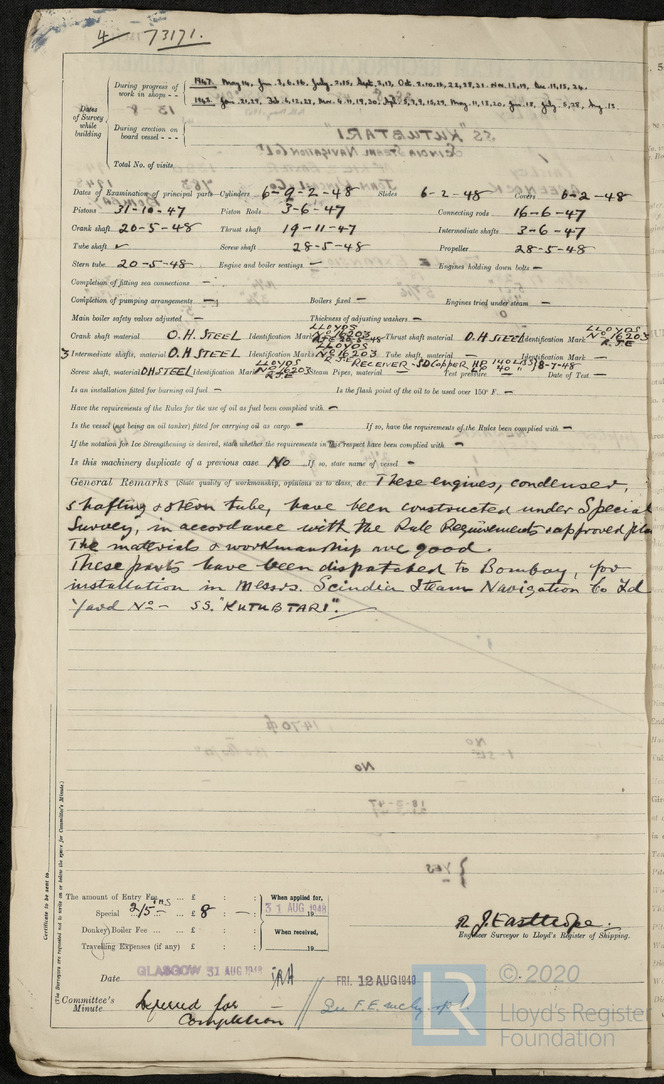 4 73171.
During progress of work in shops - - 1947. May 14, Jun. 3, 6, 16, July. 2, 15, Sept. 2, 17, Oct. 2, 10, 16, 22, 28, 31. Nov. 12, 19, Dec. 11, 15, 24.
1948. Jan. 21, 29, Feb. 6, 12, 23, Mar. 4, 11, 19, 30, 5, 7, 9, 15, 29, May. 11, 18, 20, Jun. 18, July. 5, 28, Aug. 18
Dates of Survey while building
During erection on board vessel - - -
Total No. of visits
Dates of Examination of principal parts—Cylinders 6-9-2-48 Slides 6-2-48 Covers 6-2-48
Pistons 31-10-47 Piston Rods 3-6-47 Connecting rods 16-6-47
Crank shaft 20-5-48 Thrust shaft 19-11-47 Intermediate shafts 3-6-47
Tube shaft ✓ Screw shaft 28-5-48 Propeller 28-5-48
Stern tube 20-5-48 Engine and boiler seatings — Engines holding down bolts —
Completion of fitting sea connections —
Completion of pumping arrangements — Boilers fixed — Engines tried under steam —
Main boiler safety valves adjusted — Thickness of adjusting washers —
Crank shaft material O.H. STEEL Identification Mark LLOYDS No 16203 Thrust shaft material O.H STEEL Identification Mark LLOYDS No 16203 R.J.E
3 Intermediate shafts, material O.H STEEL Identification Marks LLOYDS No 16203 R.J.E Tube shaft, material — Identification Mark —
Screw shaft, material OH STEEL Identification Mark LLOYDS No 16203 R.J.E Steam Pipes, material RECEIVER - SD COPPER Test pressure Date of Test 8-7-48
Is an installation fitted for burning oil fuel — Is the flash point of the oil to be used over 150° F. —
Have the requirements of the Rules for the use of oil as fuel been complied with —
Is the vessel (not being an oil tanker) fitted for carrying oil as cargo — If so, have the requirements of the Rules been complied with —
If the notation for Ice Strengthening is desired, state whether the requirements in this respect have been complied with —
Is this machinery duplicate of a previous case No If so, state name of vessel —
General Remarks (State quality of workmanship, opinions as to class, &c. These engines, condenser,
shafting & stern tube, have been constructed under Special
Survey, in accordance with the Rule Requirements & approved
The materials & workmanship are good.
These parts have been dispatched to Bombay, for
installation in Messrs. Scindia Steam Navigation Co Ld
Yard No — SS. "KUTUBTARI".
Certificate to be sent to
(The Surveyors are requested not to write on or below the space for Committee's Minute.)
The amount of Entry Fee ... £ : : When applied for,
Special 2/5 ths ... £ 8 : — : 31 AUG 1948 19
Donkey Boiler Fee ... £ : : When received,
Travelling Expenses (if any) £ : : 19
R. J. Easthope.
Engineer Surveyor to Lloyd's Register of Shipping.
Date GLASGOW 31 AUG 1948 FRI. 12 AUG 1949
Committee's Minute Deferred for
Completion
See F.E. mchy. rpt.
LR
© 2020
Lloyd's Register
Foundation